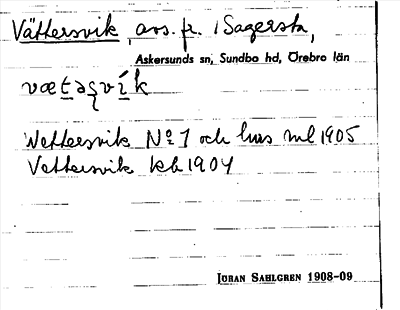 Vättersvik, avs. fr. 1 Sagersta,
Askersunds sn, Sundbo hd, Örebro län
væt̲əs̨v í̲k
Wettersvik No 1 och hus ml 1905
Vettersvik kb 1904
JÖRAN SAHLGREN 1908-09